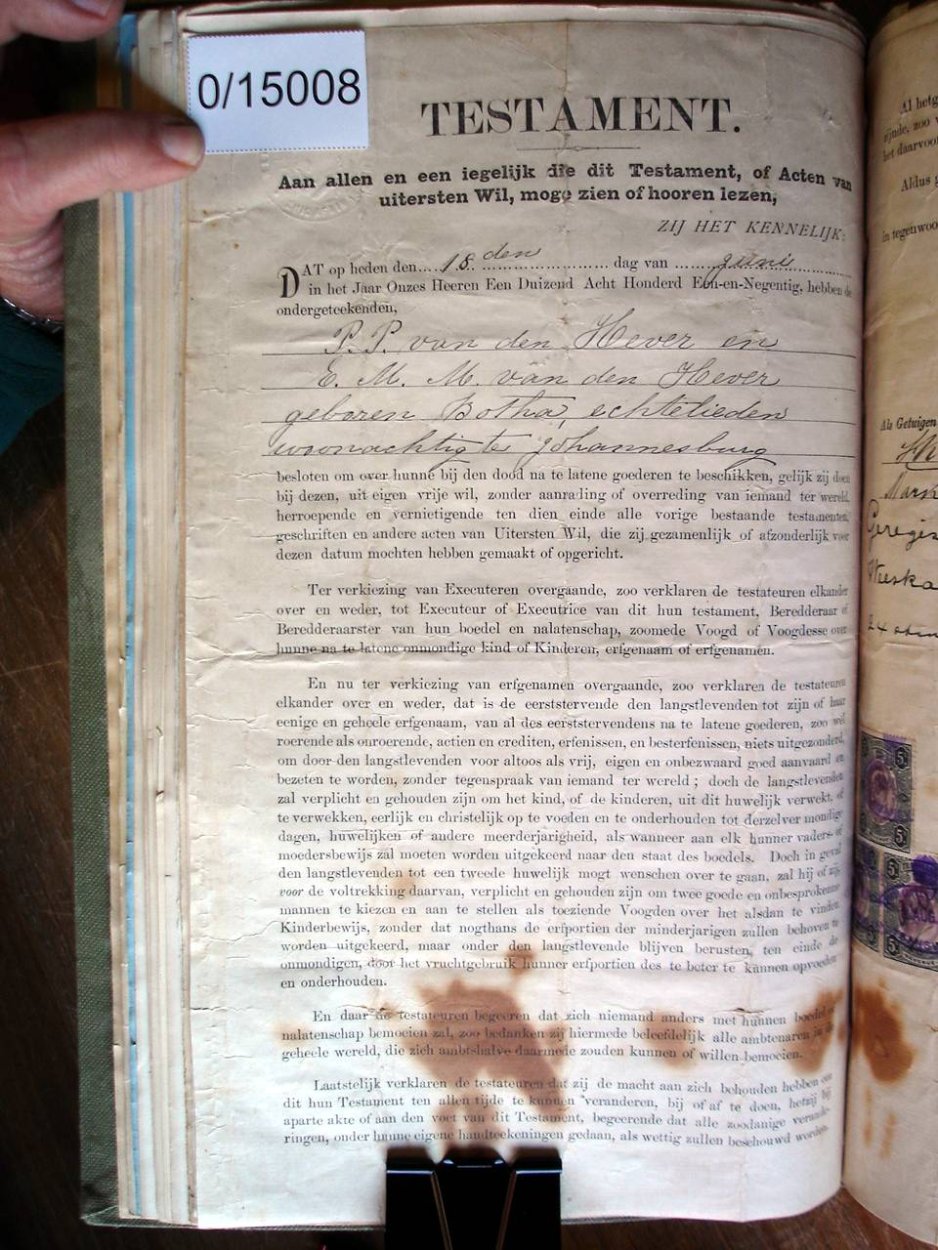 0/15008
TESTAMENT.
Aan allen en een iegelijk die dit Testament, of Acten van
uitersten Wil, moge zien of hooren lezen,
ZIJ HET KENNELIJK:
DAT op heden den....18 den........................ dag van ......Juni.............
in het Jaar Onzes Heeren Een Duizend Acht Honderd Eén-en-Negentig, hebben de
ondergeteekenden,
P. P. van den Hever en
E. M. M. van den Hever
geboren Botha, echtelieden
woonachtig te Johannesburg
besloten om over hunne bij den dood na te latene goederen te beschikken, gelijk zij doen
bij dezen, uit eigen vrije wil, zonder aanrading of overreding van iemand ter wereld,
herroepende en vernietigende ten dien einde alle vorige bestaande testamenten,
geschriften en andere acten van Uitersten Wil, die zij gezamenlijk of afzonderlijk voor
dezen datum mochten hebben gemaakt of opgericht.
Ter verkiezing van Executeren overgaande, zoo verklaren de testateuren elkander
over en weder, tot Executeur of Executrice van dit hun testament, Beredderaar of
Beredderaarster van hun boedel en nalatenschap, zoomede Voogd of Voogdesse over
hunne na te latene onmondige kind of Kinderen, erfgenaam of erfgenamen.
En nu ter verkiezing van erfgenamen overgaande, zoo verklaren de testateuren
elkander over en weder, dat is de eerststervende den langstlevenden tot zijn of haar
eenige en geheele erfgenaam, van al des eerststervendens na te latene goederen, zoo wel
roerende als onroerende, actien en crediten, erfenissen, en besterfenissen, niets uitgezonderd,
om door den langstlevenden voor altoos als vrij, eigen en onbezwaard goed aanvaard en
bezeten te worden, zonder tegenspraak van iemand ter wereld ; doch de langstlevenden
zal verplicht en gehouden zijn om het kind, of de kinderen, uit dit huwelijk verwekt, of
te verwekken, eerlijk en christelijk op te voeden en te onderhouden tot derzelver mondige
dagen, huwelijken of andere meerderjarigheid, als wanneer aan elk hunner vaders- of
moedersbewijs zal moeten worden uitgekeerd naar den staat des boedels. Doch in geval
den langstlevenden tot een tweede huwelijk mogt wenschen over te gaan, zal hij of zij,
voor de voltrekking daarvan, verplicht en gehouden zijn om twee goede en onbesprokene
mannen te kiezen en aan te stellen als toeziende Voogden over het alsdan te vinden
Kinderbewijs, zonder dat nogthans de erfportien der minderjarigen zullen behoven te
worden uitgekeerd, maar onder den langstlevende blijven berusten, ten einde de
onmondigen, door het vruchtgebruik hunner erfportien des te beter te kunnen opvoeden
en onderhouden.
En daar de testateuren begeeren dat zich niemand anders met hunnen boedel of
nalatenschap bemoeien zal, zoo bedanken zij hiermede beleefdelijk alle ambtenaren in de
geheele wereld, die zich ambtshalve daarmede zouden kunnen of willen bemoeien.
Laatstelijk verklaren de testateuren dat zij de macht aan zich behouden hebben om
dit hun Testament ten allen tijde te kunnen veranderen, bij of af te doen, hetzij bij
aparte akte of aan den voet van dit Testament, begeerende dat alle zoodanige verande-
ringen, onder hunne eigene handteekeningen gedaan, als wettig zullen beschouwd worden.
Al hetg
zijnde, zoo v
het daarvoo
Aldus g
in tegenwoo
Als Getuigen
Marsh
Geregis
Weeska
5
5